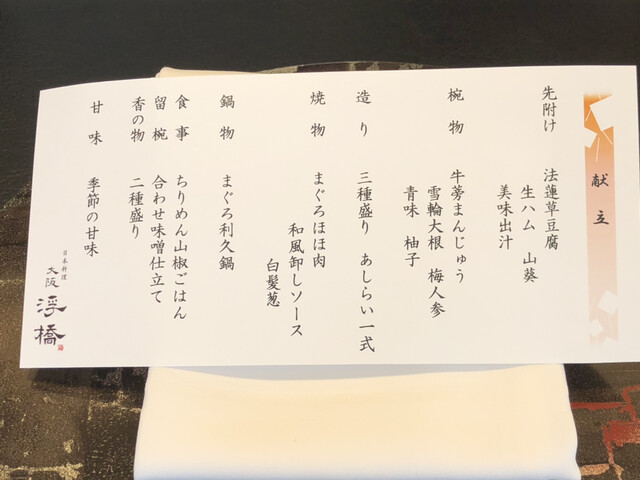 献立
先附け 法蓮草豆腐
生ハム 山葵
美味出汁
椀物 牛蒡まんじゅう
雪輪大根 梅人参
青味 柚子
造り 三種盛り あしらい一式
焼物 まぐろほほ肉
和風卸しソース
白髪葱
鍋物 まぐろ利久鍋
食事 ちりめん山椒ごはん
留椀 合わせ味噌仕立て
香の物 二種盛り
甘味 季節の甘味
日本料理
大阪
浮橋